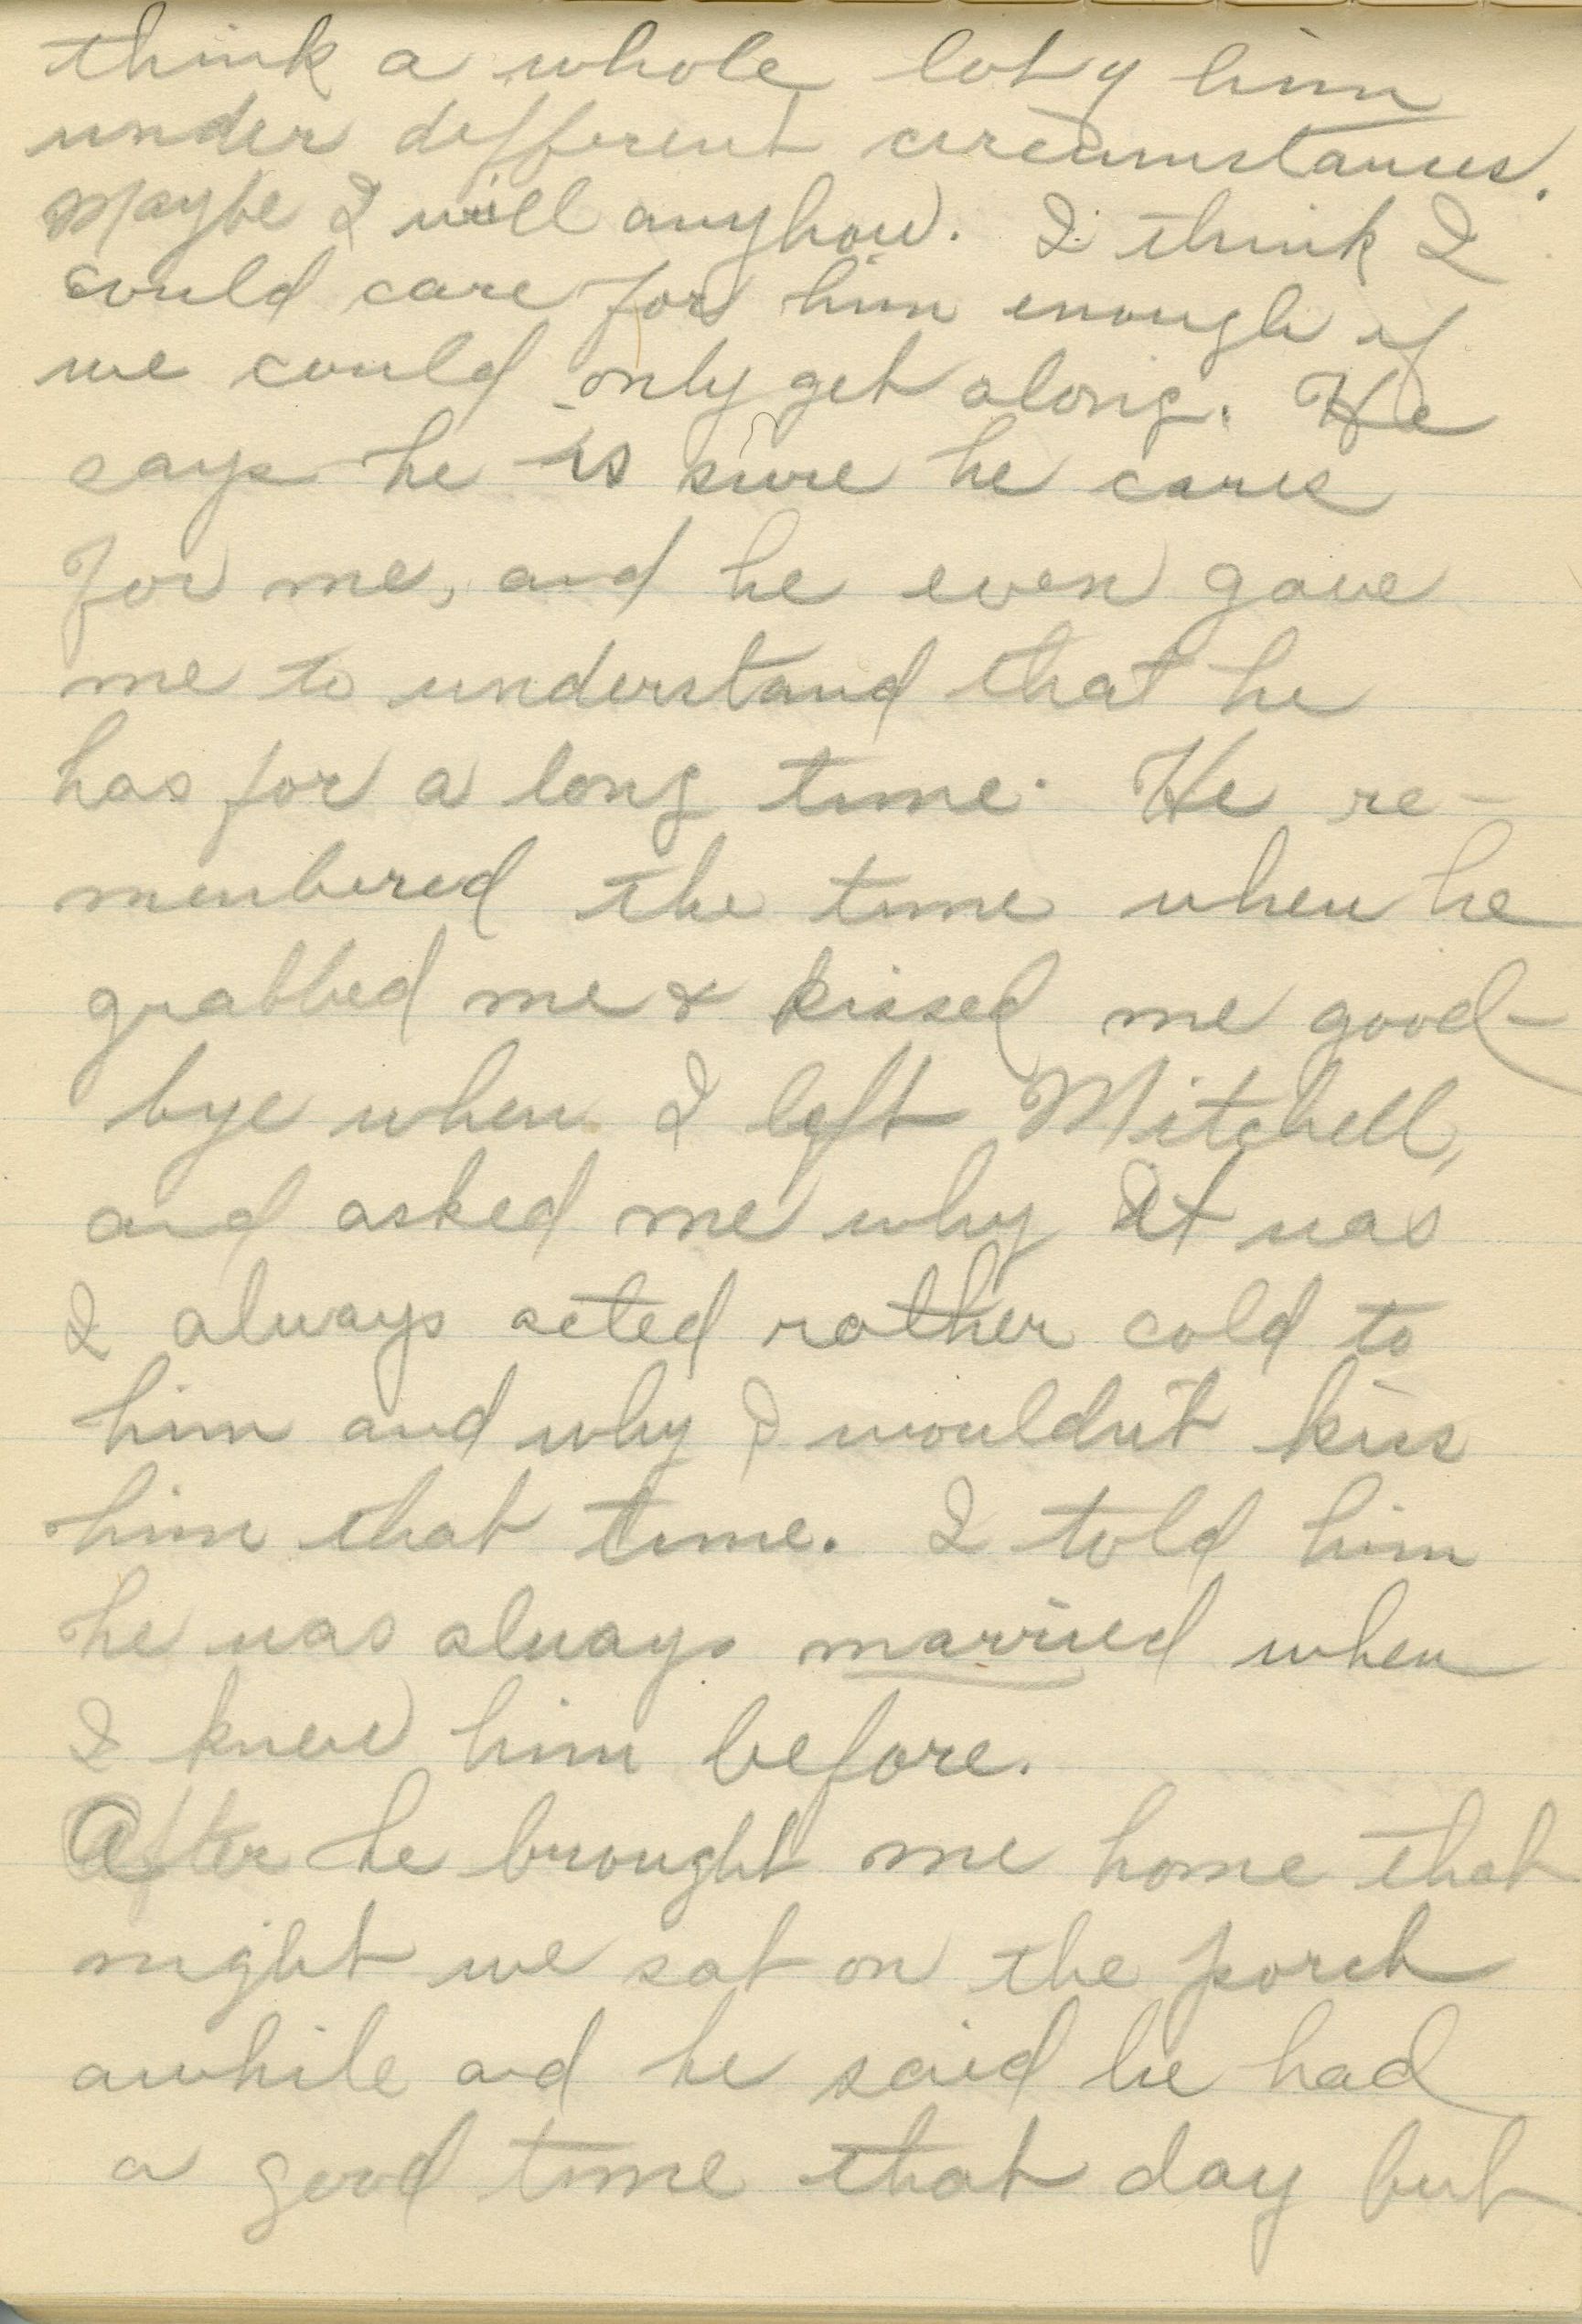 think a whole lot of him
under different circumstances.
Maybe I will anyhow. I think I
could care for him enough if
we could only get along. He
says he is sure he cares
for me, and he even gave
me to understand that he
has for a long time. He re-
membered the time when he
grabbed me & kissed me good-
bye when I left Mitchell,
and asked me why it was
I always acted rather cold to
him and why I wouldn't kiss
him that time. I told him
he was always married when
I knew him before.
After he brought me home that
night we sat on the porch
awhile and he said he had
a good time that day but